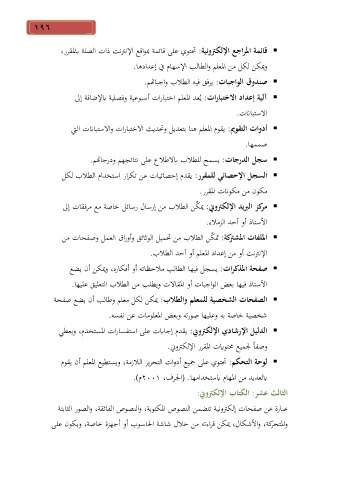 ١٩٦
▪ قائمة المراجع الإلكترونية: تحتوي على قائمة بمواقع الإنترنت ذات الصلة بالمقرر،
ويمكن لكل من المعلم والطالب الإسهام في إعدادها.
▪ صندوق الواجبات: يرفق فيه الطلاب واجباتهم.
▪ آلية إعداد الاختبارات: يُعد المعلم اختبارات أسبوعية وفصلية بالإضافة إلى
الاستبانات.
▪ أدوات التقويم: يقوم المعلم هنا بتعديل وتحديث الاختبارات والاستبانات التي
صممها.
▪ سجل الدرجات: يسمح للطلاب بالاطلاع على نتائجهم ودرجاتهم.
▪ السجل الإحصائي للمقرر: يقدم إحصائيات عن تكرار استخدام الطلاب لكل
مكون من مكونات المقرر.
▪ مركز البريد الإلكتروني: يمكّن الطلاب من إرسال رسائل خاصة مع مرفقات إلى
الأستاذ أو أحد الزملاء.
▪ الملفات المشتركة: تمكّن الطلاب من تحميل الوثائق وأوراق العمل وصفحات من
الإنترنت أو من إعداد المعلم أو أحد الطلاب.
▪ صفحة المذكرات: يسجل فيها الطالب ملاحظاته أو أفكاره، ويمكن أن يضع
الأستاذ فيها بعض الواجبات أو المقالات ويطلب من الطلاب التعليق عليها.
▪ الصفحات الشخصية للمعلم والطلاب: يمكن لكل معلم وطالب أن يضع صفحة
شخصية خاصة به وعليها صورته وبعض المعلومات عن نفسه.
▪ الدليل الإرشادي الإلكتروني: يقدم إجابات على استفسارات المستخدم، ويعطي
وصفاً لجميع محتويات المقرر الإلكتروني.
▪ لوحة التحكم: تحتوي على جميع أدوات التحرير اللازمة، ويستطيع المعلم أن يقوم
بالعديد من المهام باستخدامها. (الجرف، ٢٠٠١م).
الثالث عشر: الكتاب الإلكتروني:
عبارة عن صفحات إلكترونية تتضمن النصوص المكتوبة، والنصوص الفائقة، والصور الثابتة
والمتحركة، والأشكال، يمكن قراءته من خلال شاشة الحاسوب أو أجهزة خاصة، ويكون على